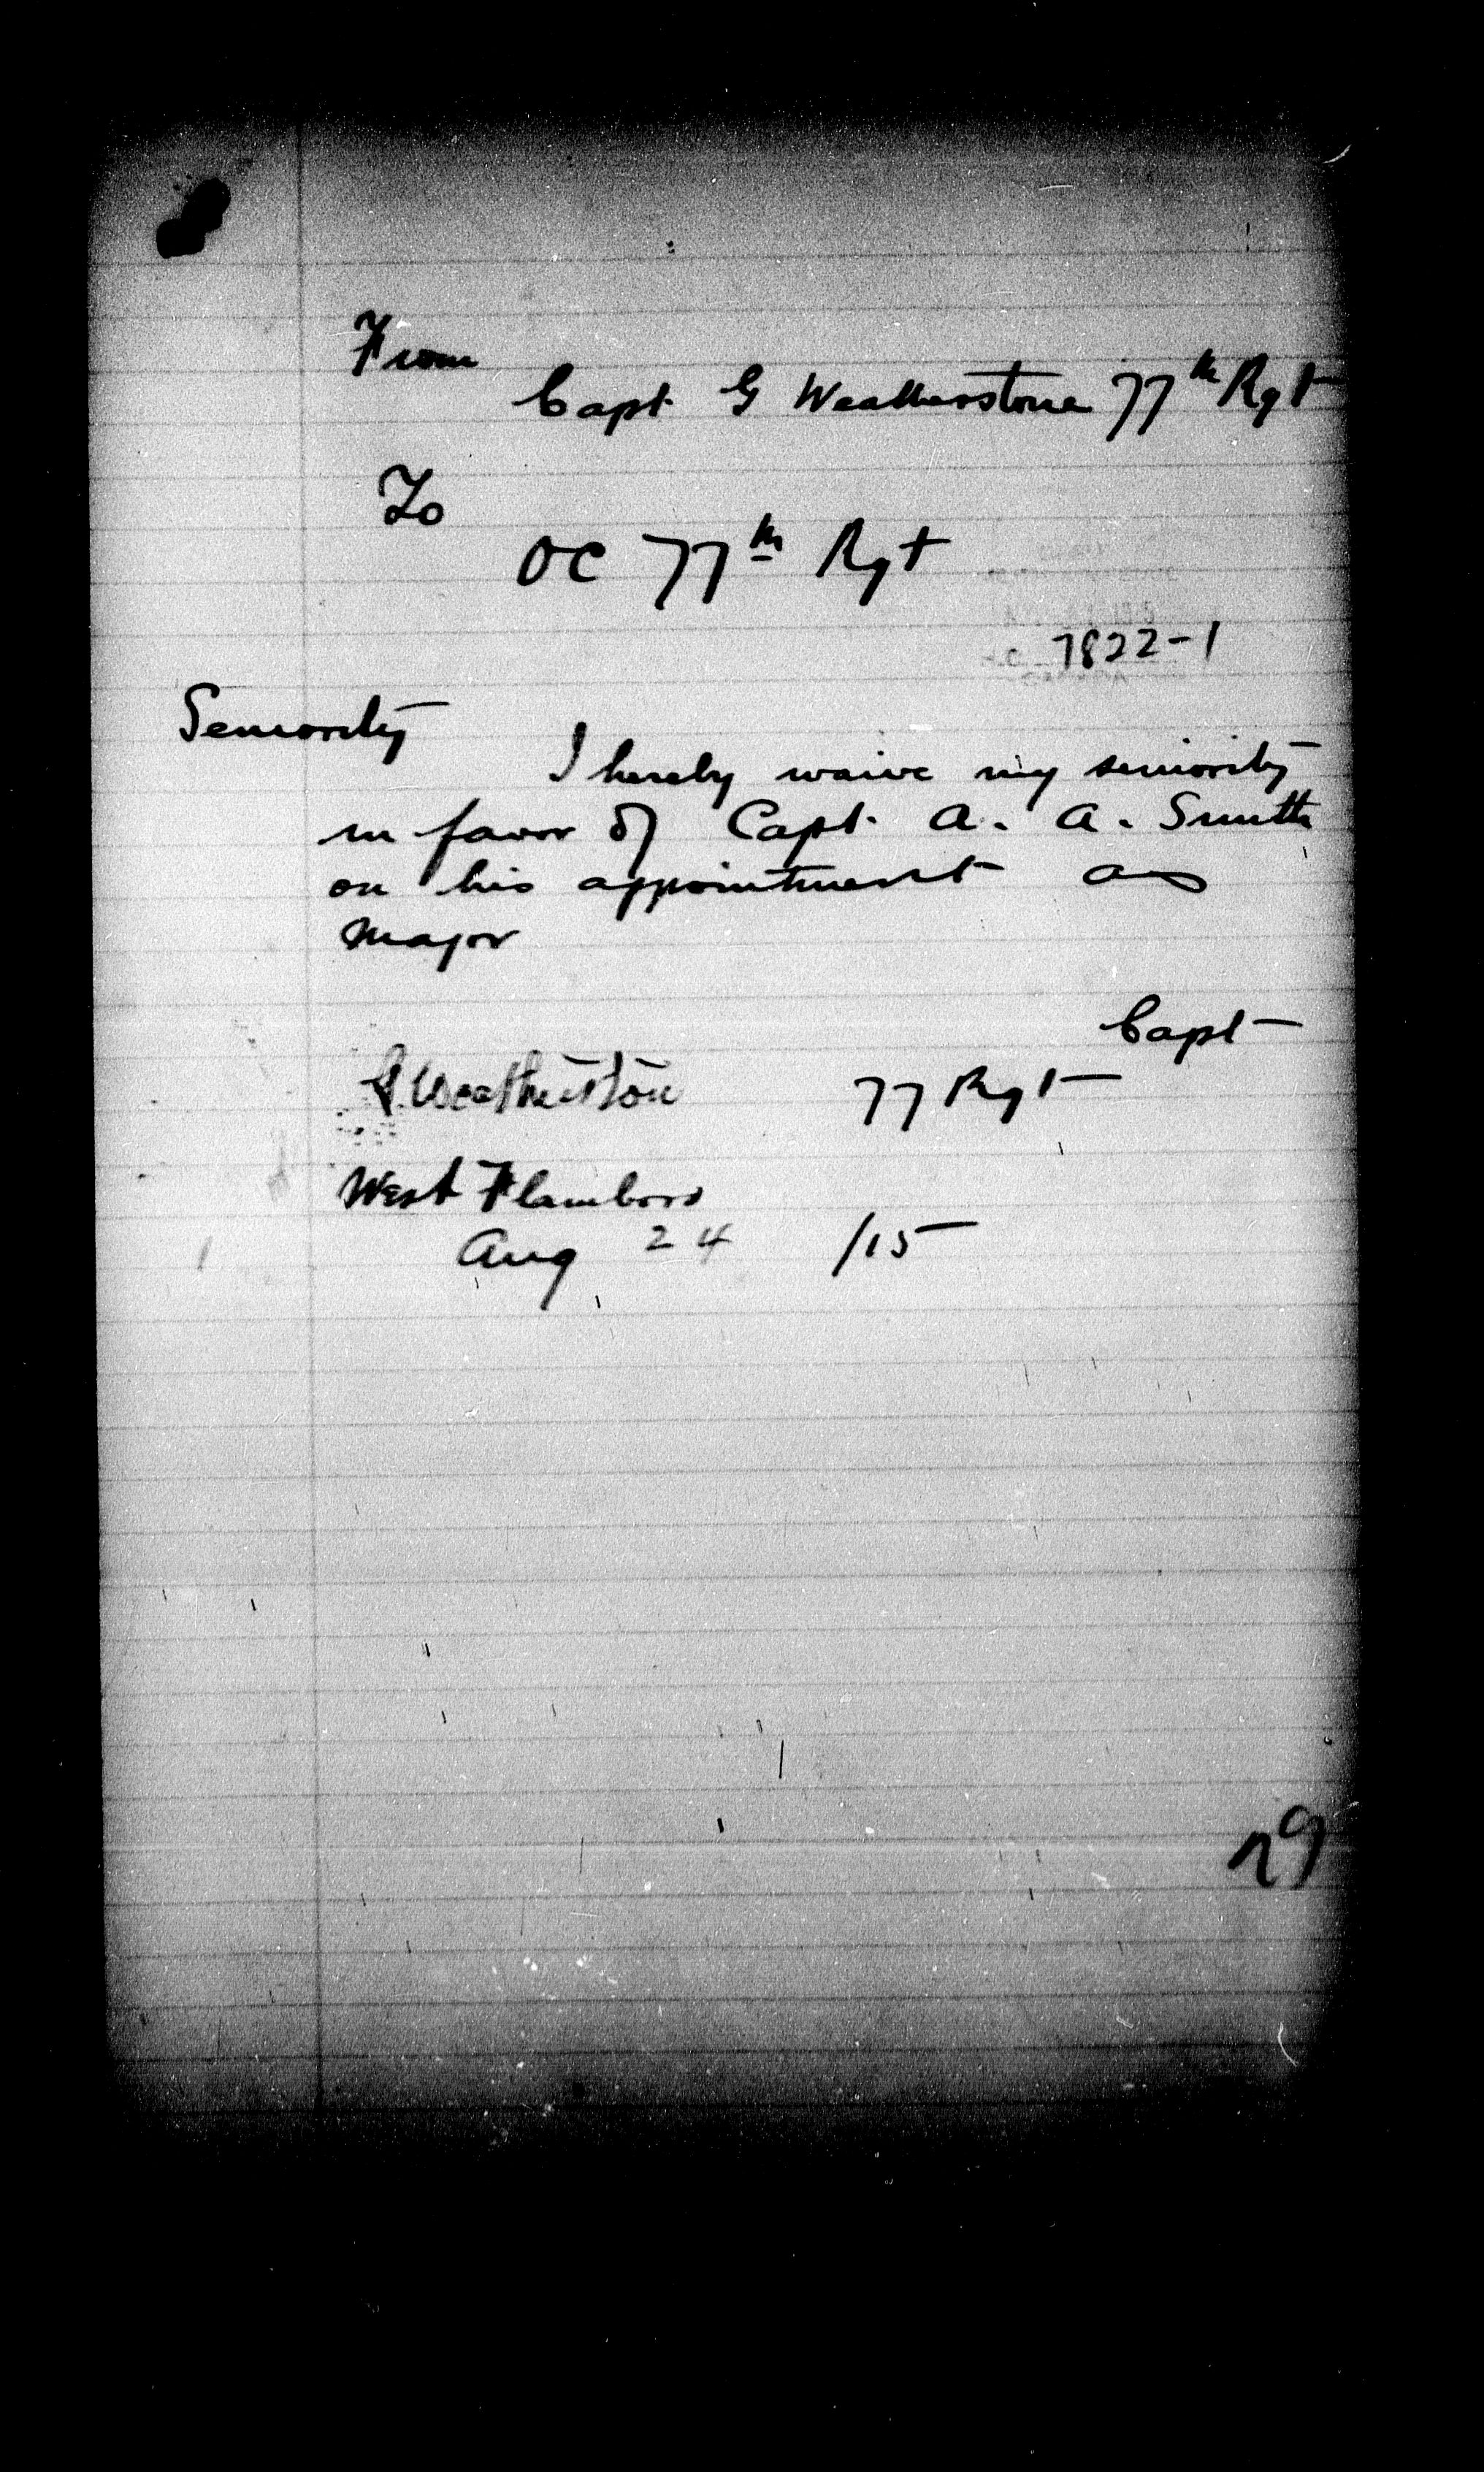 From
Capt. G Weatherstone 77th Rgt
To
OC 77th Rgt
7822-1
Seniority
I hereby waive my seniority
in favor of Capt. A. A. Smith
on his appointment as
Major
Capt
G. Weatherston 77 Rgt
West Flamboro
Aug 24 /15
29